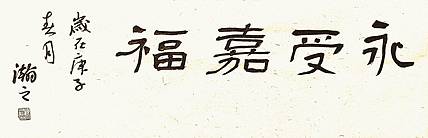 永受嘉福
歲在庚子
春月
瀚之